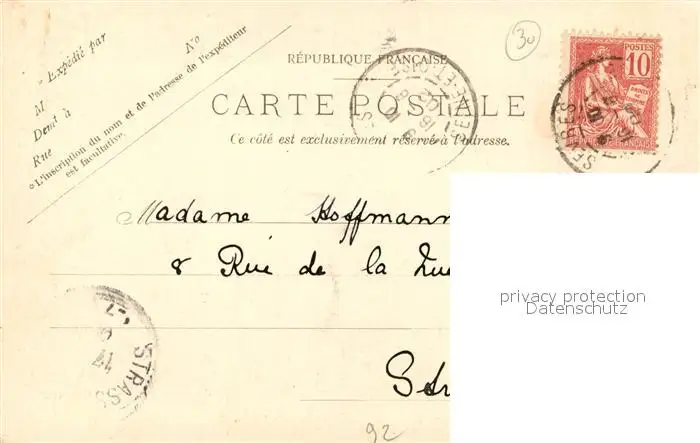 30
Expédié par
No
M
Demt à
Rue
L'inscription du nom et de l'adresse de l'expéditeur
est facultative.
RÉPUBLIQUE FRANÇAISE
CARTE POSTALE
Ce côté est exclusivement réservé à l'adresse.
POSTES
10
SÈVRES
SEINE-ET-OISE
Madame Hoffmann
8 Rue de la
privacy protection
Datenschutz
STRASS
17
92